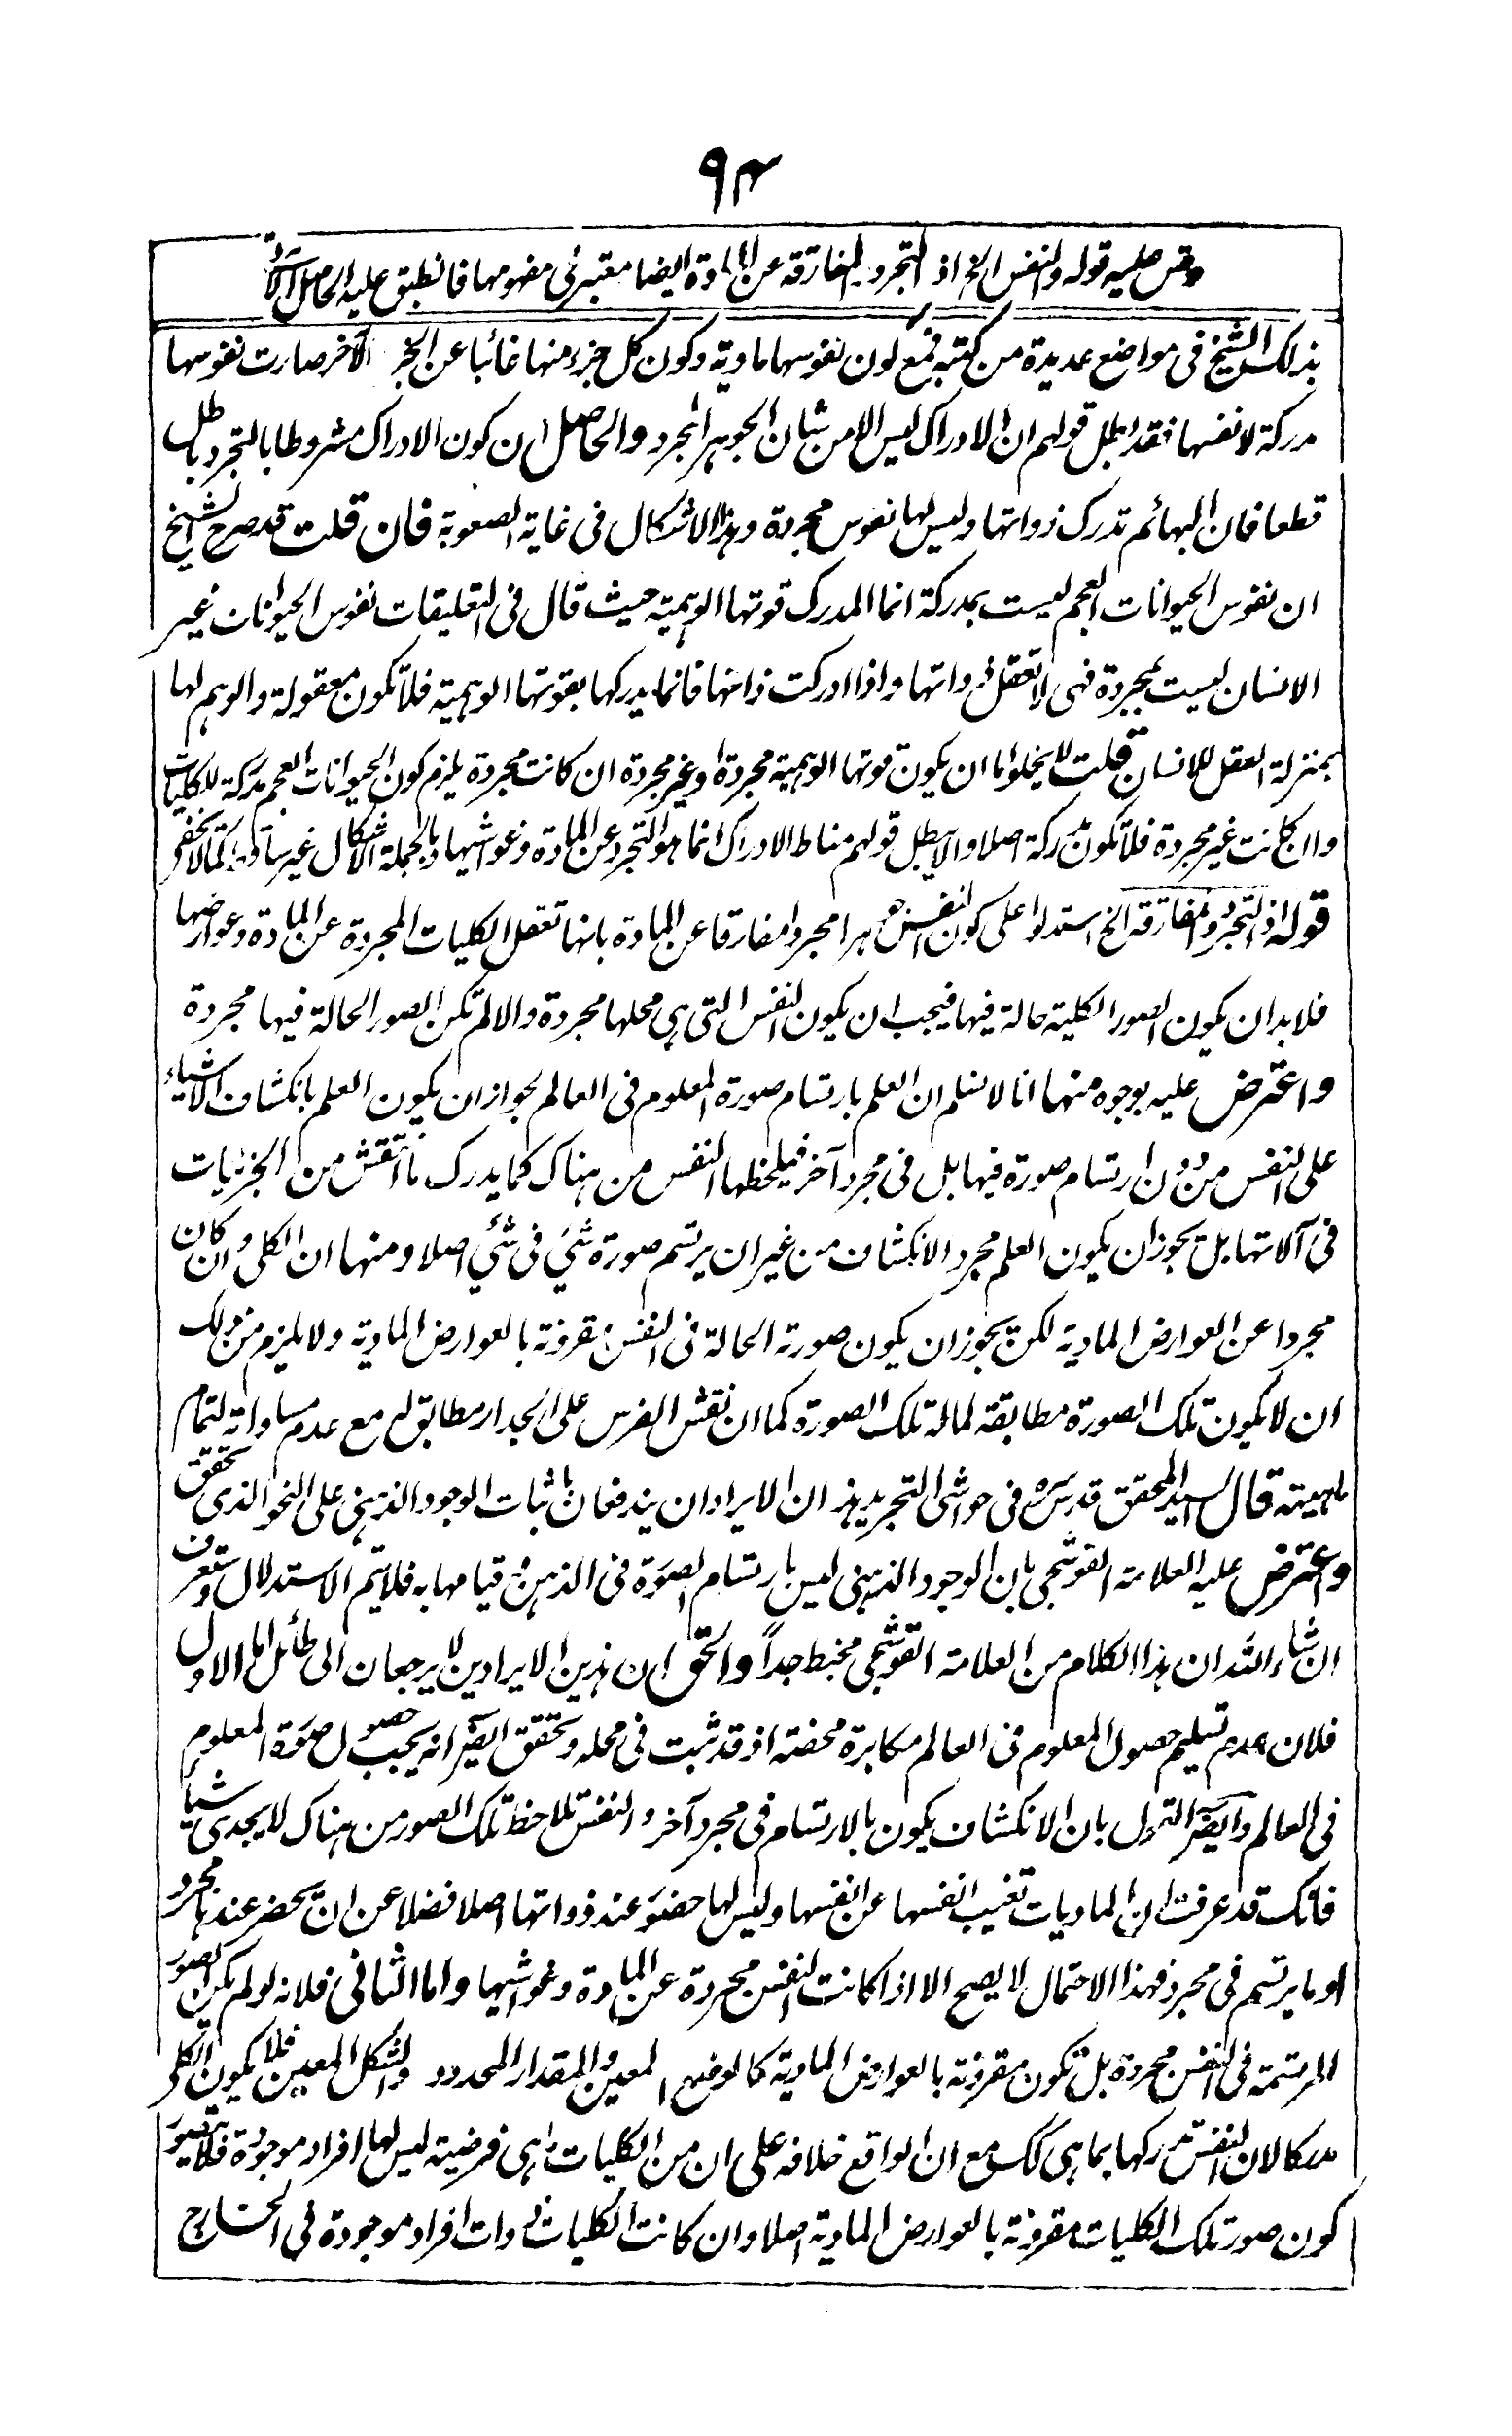 ٩٤
وقس عليه قوله والنفس الخ اذ التجرد والمفارقة عن المادة ايضا معتبر في مفهومها فانطبق عليه الحاصل
بذلك الشيخ في مواضع عديدة من كتبه فمع كون نفوسها مادية وكون كل جزء منها غائبا عن الجزء الآخر صارت نفوسها
مدركة لانفسها فقد بطل قولهم ان الادراك ليس الا من شان الجوهر المجرد والحاصل ان كون الادراك مشروطا بالتجرد باطل
قطعا فان البهائم تدرك ذواتها وليس لها نفوس مجردة وهذا الاشكال في غاية الصعوبة فان قلت قد صرح الشيخ
ان نفوس الحيوانات العجم ليست بمدركة انما المدرك قوتها الوهمية حيث قال في التعليقات نفوس الحيوانات غير
الانسان ليست بمجردة فهي لا تعقل ذواتها واذا ادركت ذاتها فانما يدركها بقوتها الوهمية فلا تكون معقولة والوهم لها
بمنزلة العقل للانسان قلت لا يخلو اما ان يكون قوتها الوهمية مجردة او غير مجردة ان كانت مجردة يلزم كون الحيوانات العجم مدركة للكليات
وان كانت غير مجردة فلا تكون مدركة اصلا والا يبطل قولهم مناط الادراك انما هو التجرد عن المادة وغواشيها وبالجملة الاشكال غير ساقط كما لا يخفى
قوله اذ التجرد والمفارقة الخ استدلوا على كون النفس جوهرا مجردا مفارقا عن المادة بانها تعقل الكليات المجردة عن المادة وعوارضها
فلا بد ان يكون الصور الكلية حالة فيها فيجب ان يكون النفس التي هي محلها مجردة والا لم تكن الصور الحالة فيها مجردة
واعترض عليه بوجوه منها انا لا نسلم ان العلم بارتسام صورة المعلوم في العالم لجواز ان يكون العلم بانكشاف الاشياء
على النفس من دون ارتسام صورة فيها بل في مجرد آخر فيلحظها النفس من هناك كما يدرك ما انتقش من الجزئيات
في آلاتها بل يجوز ان يكون العلم مجرد الانكشاف من غير ان يرتسم صورة شيء في شيء اصلا ومنها ان الكلي وان كان
مجردا عن العوارض المادية لكن يجوز ان يكون صورته الحالة في النفس مقرونة بالعوارض المادية ولا يلزم من ذلك
ان لا يكون تلك الصورة مطابقة لما له تلك الصورة كما ان نقش الفرس على الجدار مطابق له مع عدم مساواته لتمام
ماهيته قال السيد المحقق قدس سره في حواشي التجريد هذان الايرادان يندفعان باثبات الوجود الذهني على النحو الذي تحقق
واعترض عليه العلامة القوشجي بان الوجود الذهني ليس بارتسام الصورة في الذهن وقيامها به فلا يتم الاستدلال وستعرف
ان شاء الله ان هذا الكلام من العلامة القوشجي مخبط جدا والحق ان هذين الايرادين لا يرجعان الى طائل اما الاول
فلان عدم تسليم حصول المعلوم في العالم مكابرة محضة اذ قد ثبت في محله وتحقق ايضا انه يجب حصول صورة المعلوم
في العالم وايضا القول بان الانكشاف يكون بالارتسام في مجرد آخر والنفس تلاحظ تلك الصور من هناك لا يجدي شيئا
فانك قد عرفت ان الماديات تغيب انفسها عن انفسها وليس لها حضور عند ذواتها اصلا فضلا عن ان يحضر عندها مجرد
او ما يرتسم في مجرد فهذا الاحتمال لا يصح الا اذا كانت النفس مجردة عن المادة وغواشيها واما الثاني فلانه لو لم يكن الصور
المرتسمة في النفس مجردة بل تكون مقرونة بالعوارض المادية كالوضع المعين والمقدار المحدود والشكل المعين فلا يكون الكلي
مدركا لان النفس تدركها بما هي كك مع ان الواقع خلافه على ان من الكليات ما هي فرضية ليس لها افراد موجودة فلا يتصور
كون صور تلك الكليات مقرونة بالعوارض المادية اصلا وان كانت الكليات ذوات افراد موجودة في الخارج